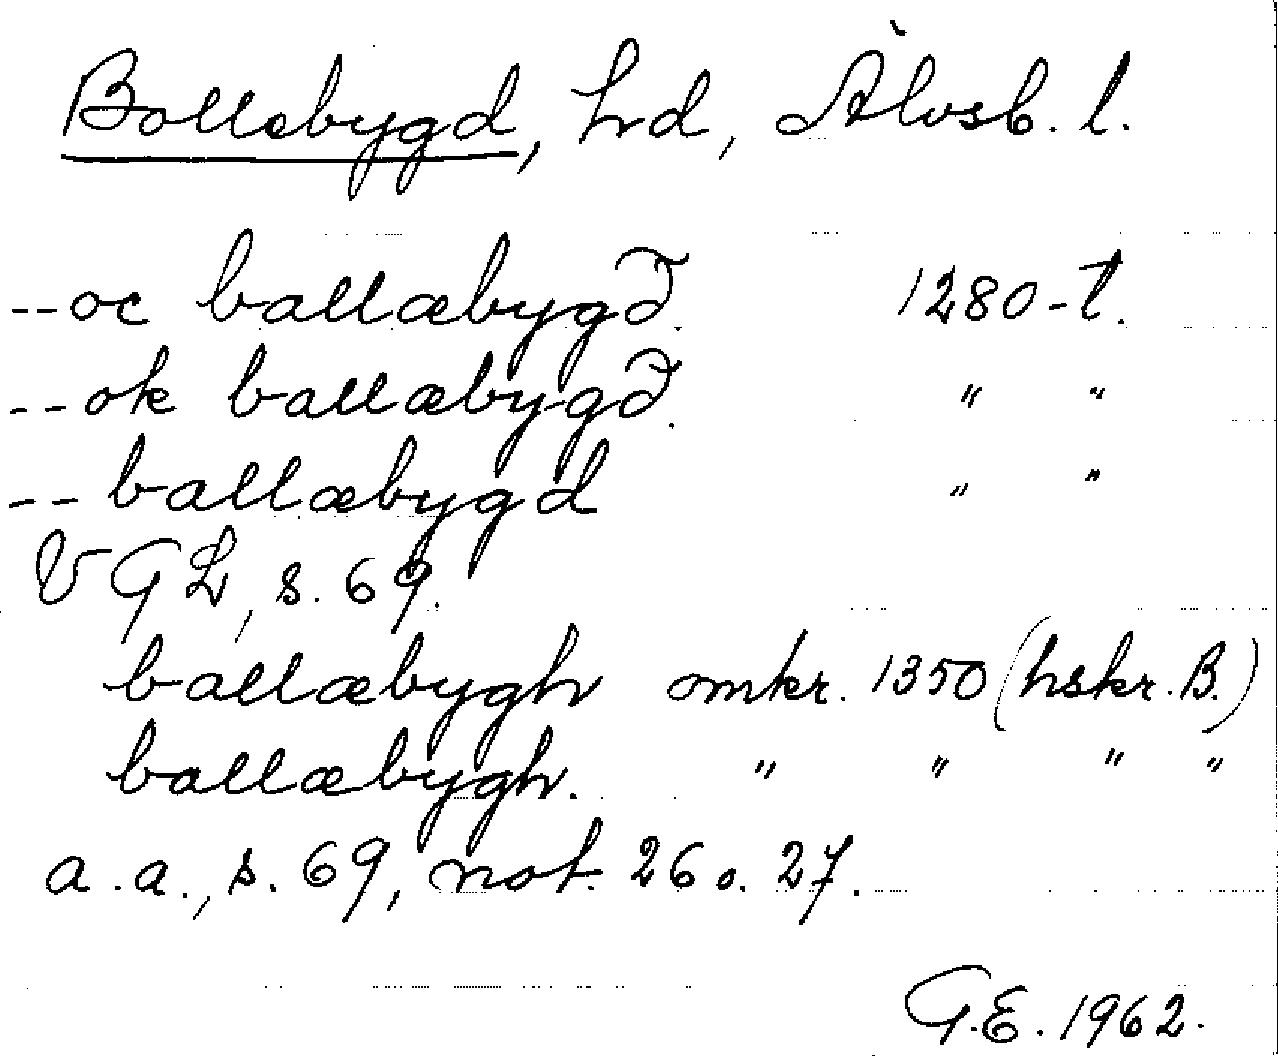 Bollebygd, hd, Älvsb. l.
--oc ballæbygð. 1280-t.
--ok ballæbygð. " "
-- ballæbygd " "
VGL, s. 69.
ballæbygh omkr. 1350 (hskr. B.)
ballæbygh. " " " "
a.a., s. 69, not. 26 o. 27.
G.E. 1962.